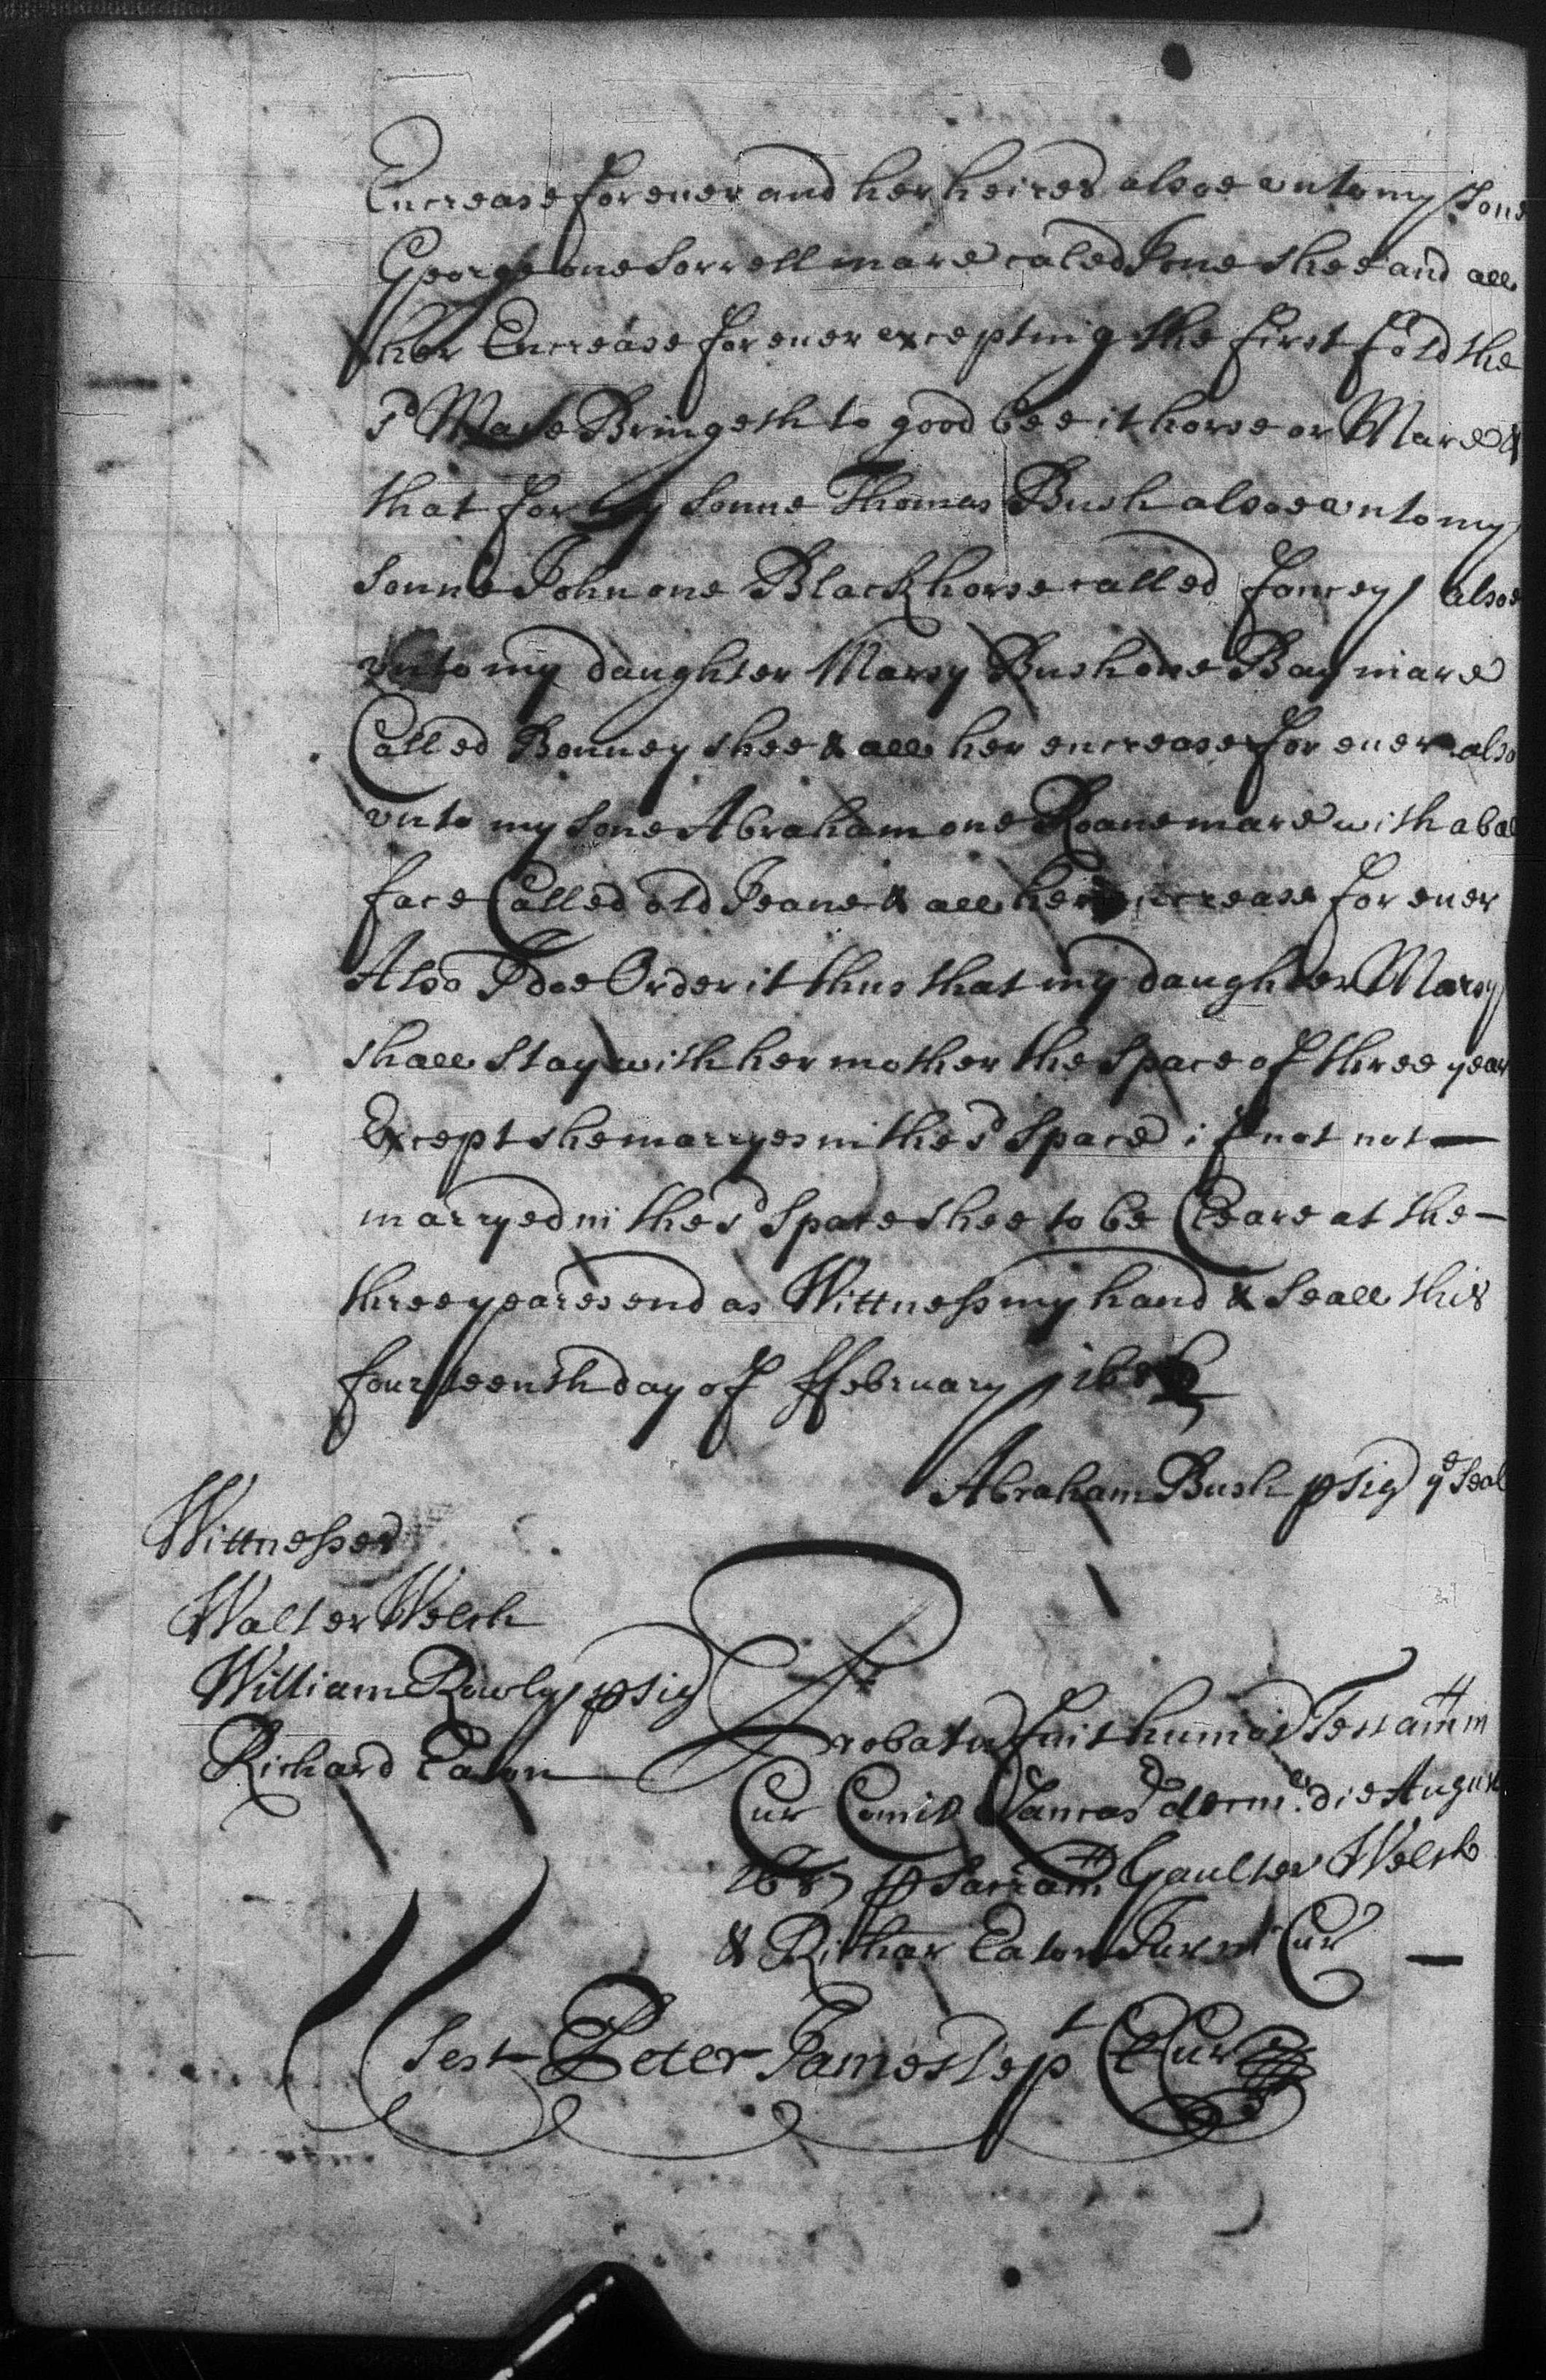 Encrease for euer and her heires alsoe vnto my Sone
George one Sorrell mare caled Jone shee and all
her Encrease for euer excepting the first fold the
sd Mare Bringeth to good bee it horse or Mare &
that for my Sonne Thomas Bush alsoe vnto my
Sonne John one Black horse called fancey alsoe
vnto my daughter Marey Bush one Bay mare
Called Bonney shee & all her encrease for euer also
vnto my Sone Abraham one Roane mare with a bal
face Called old Jeane & all her increase for euer
Also I doe Order it thus that my daughter Marey
shall Stay with her mother the Space of three year
Except she marryes in the sd Space if not not
marryed in the sd Space shee to be Cleare at the
three yeares end as Wittness my hand & Seall this
fourteenth day of ffebruary
Abraham Bush p sig ye Seal
Wittnesses
Walter Welch
William Rowly p sig
Richard Eaton
Probatu fuit humoi Testamtt in
Cur Comit Lancas die August
1687 p Sacramtt Gaulter Welch
& Richar Eaton Jur in Cur
Test Peter James Dept Cl Cur